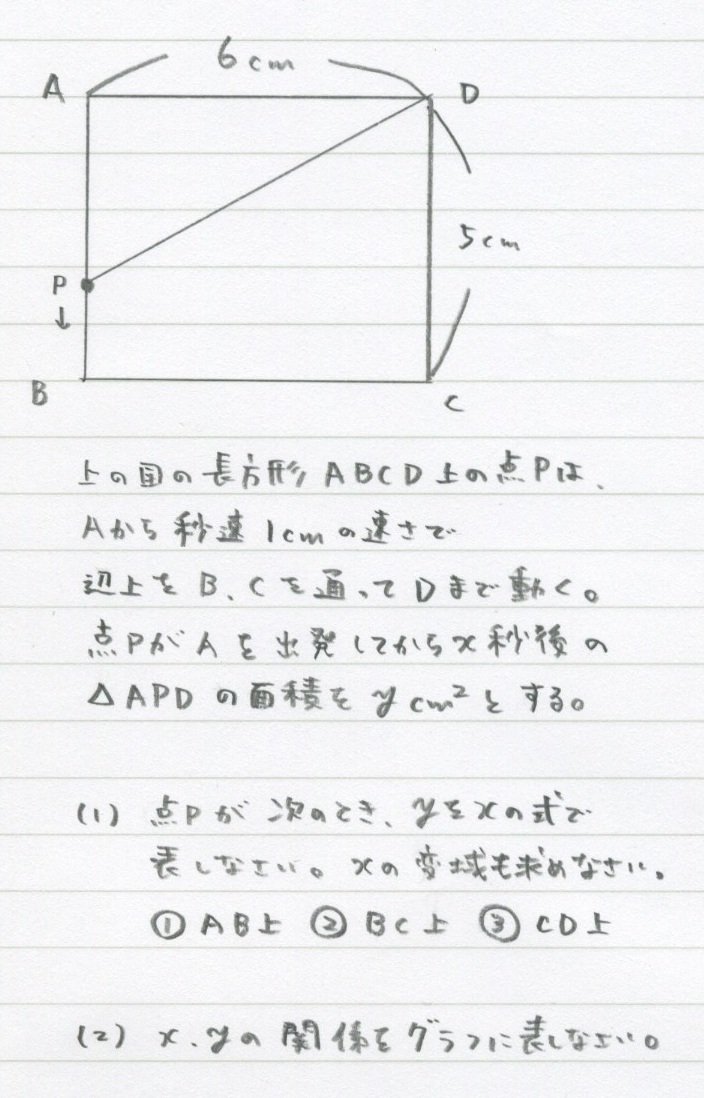 6cm
A
D
5cm
P
↓
B
C
上の図の長方形ABCD上の点Pは、
Aから秒速1cmの速さで
辺上をB、Cを通ってDまで動く。
点PがAを出発してからx秒後の
△APDの面積をy cm²とする。
(1) 点Pが次のとき、yをxの式で
表しなさい。xの変域も求めなさい。
① AB上 ② BC上 ③ CD上
(2) x、yの関係をグラフに表しなさい。